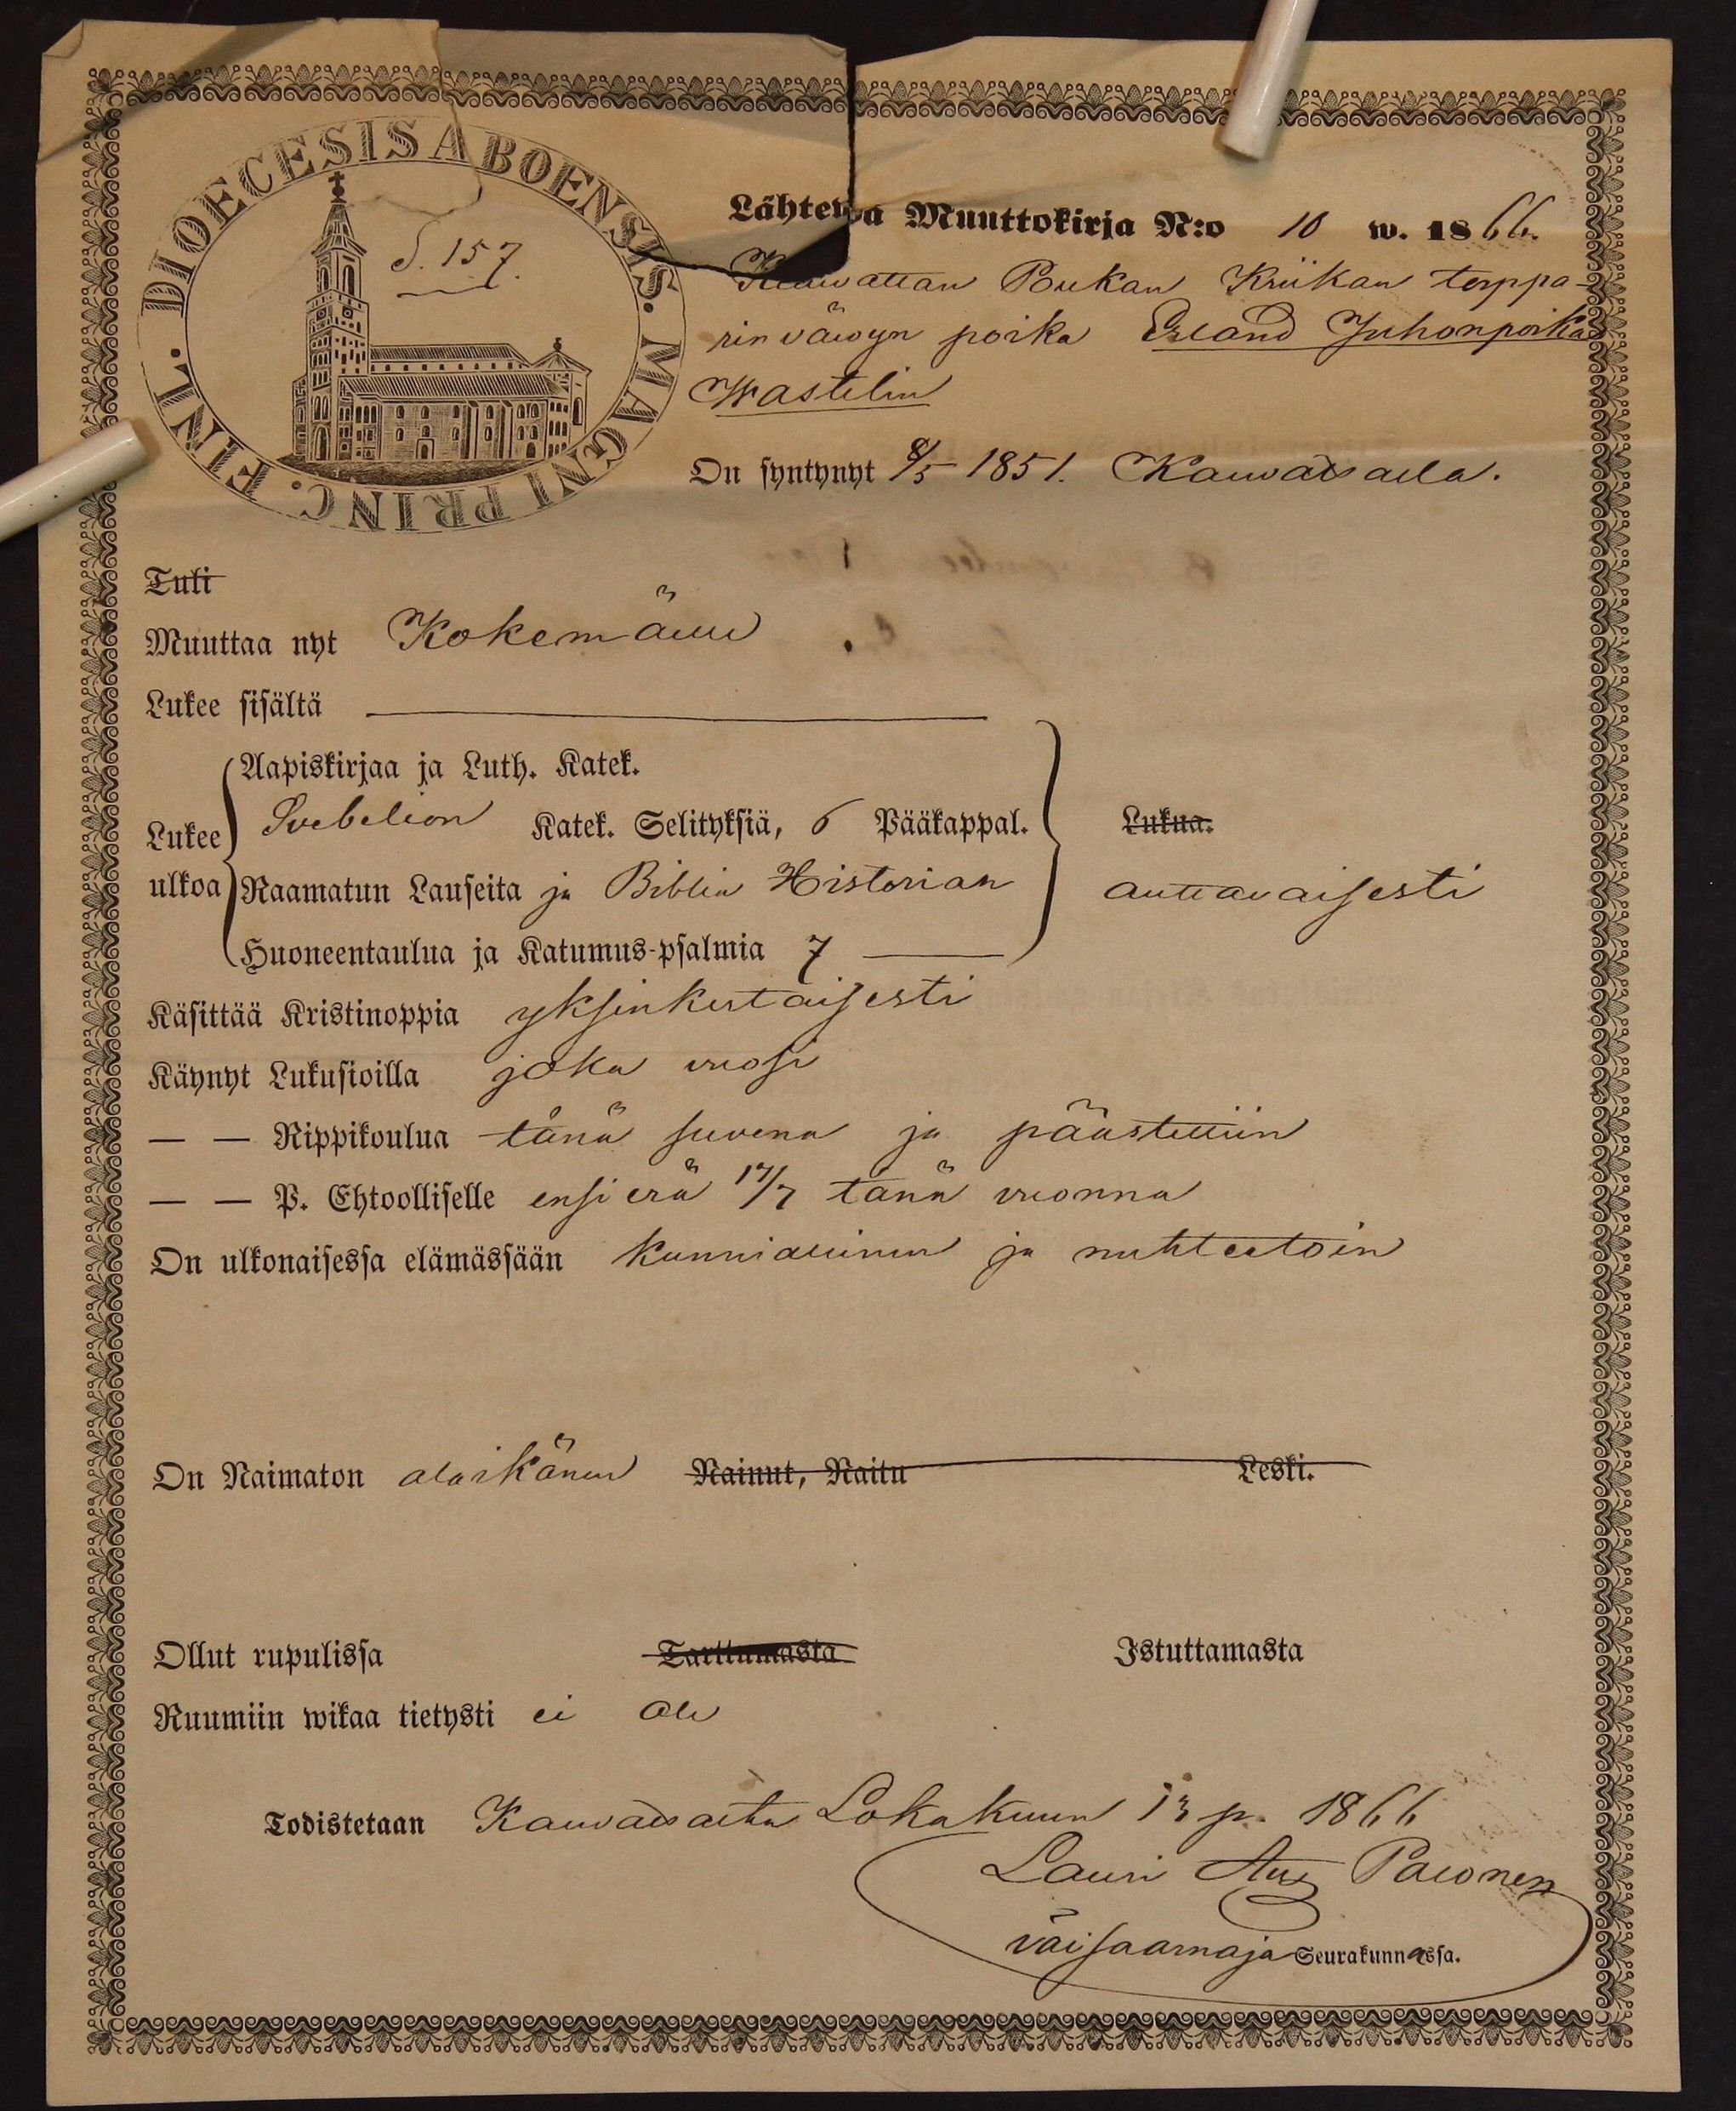 DIOECESIS ABOENSIS. MAGNI PRINC. FINL.
S. 157.
Lähtewä Muuttokirja N:o 10 w. 1866.
Kauvattan Poukan Kriikan torppa-
rin väwyn poika Erland Juhonpoika
Wastelin
On syntynyt 8/5 1851. Kauvatsalla.
Tuli
Muuttaa nyt Kokemäun
Lukee sisältä
Aapiskirjaa ja Luth. Katek.
Lukee ulkoa
Svebelion Katek. Selityksiä, 6 Pääkappal.
Lukua.
Raamatun Lauseita ja Biblia Historian
auttavaisesti
Huoneentaulua ja Katumus-psalmia 7
Käsittää Kristinoppia yksinkertaisesti
Käynyt Lukusioilla joka vuosi
— — Rippikoulua tänä suvena ja päästettiin
— — P. Ehtoolliselle ensi erä 17/7 tänä vuonna
On ulkonaisessa elämässään kunniallinen ja nuhteetoin
On Naimaton alaikänen Nainut, Naitu Leski.
Ollut rupulissa Tarttumasta Istuttamasta
Ruumiin wikaa tietysti ei ole
Todistetaan Kauvatsalta Lokakuun 13 p. 1866
Lauri Aug Paionen
väl.saarnaja Seurakunnassa.